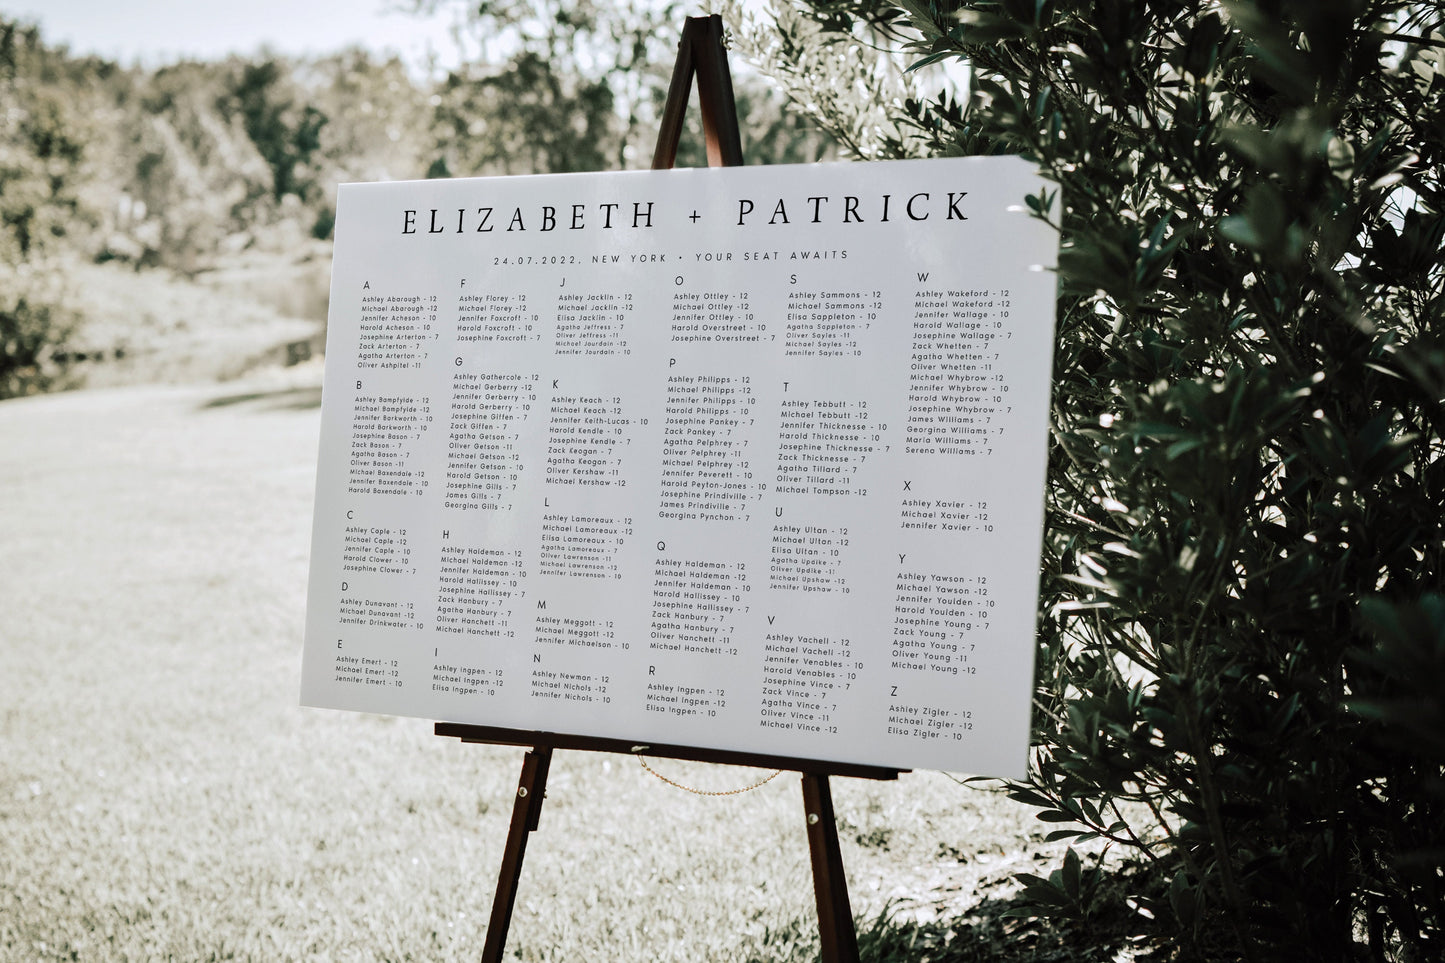 ELIZABETH + PATRICK
24.07.2022. NEW YORK • YOUR SEAT AWAITS
A
Ashley Abarough - 12
Michael Abarough -12
Jennifer Acheson - 10
Harold Acheson - 10
Josephine Arterton - 7
Zack Arterton - 7
Agatha Arterton - 7
Oliver Ashpitel -11
B
Ashley Bampfylde - 12
Michael Bampfylde -12
Jennifer Barkworth - 10
Harold Barkworth - 10
Josephine Bason - 7
Zack Bason - 7
Agatha Bason - 7
Oliver Bason -11
Michael Baxendale -12
Jennifer Baxendale - 10
Harold Baxendale - 10
C
Ashley Caple - 12
Michael Caple -12
Jennifer Caple - 10
Harold Clower - 10
Josephine Clower - 7
D
Ashley Dunavant - 12
Michael Dunavant -12
Jennifer Drinkwater - 10
E
Ashley Emert - 12
Michael Emert -12
Jennifer Emert - 10
F
Ashley Florey - 12
Michael Florey -12
Jennifer Foxcroft - 10
Harold Foxcroft - 10
Josephine Foxcroft - 7
G
Ashley Gathercole - 12
Michael Gerberry -12
Jennifer Gerberry - 10
Harold Gerberry - 10
Josephine Giffen - 7
Zack Giffen - 7
Agatha Getson - 7
Oliver Getson -11
Michael Getson -12
Jennifer Getson - 10
Harold Getson - 10
Josephine Gills - 7
James Gills - 7
Georgina Gills - 7
H
Ashley Haldeman - 12
Michael Haldeman -12
Jennifer Haldeman - 10
Harold Hallissey - 10
Josephine Hallissey - 7
Zack Hanbury - 7
Agatha Hanbury - 7
Oliver Hanchett -11
Michael Hanchett -12
I
Ashley Ingpen - 12
Michael Ingpen -12
Elisa Ingpen - 10
J
Ashley Jacklin - 12
Michael Jacklin -12
Elisa Jacklin - 10
Agatha Jeffress - 7
Oliver Jeffress -11
Michael Jourdain -12
Jennifer Jourdain - 10
K
Ashley Keach - 12
Michael Keach -12
Jennifer Keith-Lucas - 10
Harold Kendle - 10
Josephine Kendle - 7
Zack Keogan - 7
Agatha Keogan - 7
Oliver Kershaw -11
Michael Kershaw -12
L
Ashley Lamoreaux - 12
Michael Lamoreaux -12
Elisa Lamoreaux - 10
Agatha Lamoreaux - 7
Oliver Lawrenson -11
Michael Lawrenson -12
Jennifer Lawrenson - 10
M
Ashley Meggott - 12
Michael Meggott -12
Jennifer Michaelson - 10
N
Ashley Newman - 12
Michael Nichols -12
Jennifer Nichols - 10
O
Ashley Ottley - 12
Michael Ottley -12
Jennifer Ottley - 10
Harold Overstreet - 10
Josephine Overstreet - 7
P
Ashley Philipps - 12
Michael Philipps -12
Jennifer Philipps - 10
Harold Philipps - 10
Josephine Pankey - 7
Zack Pankey - 7
Agatha Pelphrey - 7
Oliver Pelphrey -11
Michael Pelphrey -12
Jennifer Peverett - 10
Harold Peyton-Jones - 10
Josephine Prindiville - 7
James Prindiville - 7
Georgina Pynchon - 7
Q
Ashley Haldeman - 12
Michael Haldeman -12
Jennifer Haldeman - 10
Harold Hallissey - 10
Josephine Hallissey - 7
Zack Hanbury - 7
Agatha Hanbury - 7
Oliver Hanchett -11
Michael Hanchett -12
R
Ashley Ingpen - 12
Michael Ingpen -12
Elisa Ingpen - 10
S
Ashley Sammons - 12
Michael Sammons -12
Elisa Sappleton - 10
Agatha Sappleton - 7
Oliver Sayles -11
Michael Sayles -12
Jennifer Sayles - 10
T
Ashley Tebbutt - 12
Michael Tebbutt -12
Jennifer Thicknesse - 10
Harold Thicknesse - 10
Josephine Thicknesse - 7
Zack Thicknesse - 7
Agatha Tillard - 7
Oliver Tillard -11
Michael Tompson -12
U
Ashley Ultan - 12
Michael Ultan -12
Elisa Ultan - 10
Agatha Updike - 7
Oliver Updike -11
Michael Upshaw -12
Jennifer Upshaw - 10
V
Ashley Vachell - 12
Michael Vachell -12
Jennifer Venables - 10
Harold Venables - 10
Josephine Vince - 7
Zack Vince - 7
Agatha Vince - 7
Oliver Vince -11
Michael Vince -12
W
Ashley Wakeford - 12
Michael Wakeford -12
Jennifer Wallage - 10
Harold Wallage - 10
Josephine Wallage - 7
Zack Whetten - 7
Agatha Whetten - 7
Oliver Whetten -11
Michael Whybrow -12
Jennifer Whybrow - 10
Harold Whybrow - 10
Josephine Whybrow - 7
James Williams - 7
Georgina Williams - 7
Maria Williams - 7
Serena Williams - 7
X
Ashley Xavier - 12
Michael Xavier -12
Jennifer Xavier - 10
Y
Ashley Yawson - 12
Michael Yawson -12
Jennifer Youlden - 10
Harold Youlden - 10
Josephine Young - 7
Zack Young - 7
Agatha Young - 7
Oliver Young -11
Michael Young -12
Z
Ashley Zigler - 12
Michael Zigler -12
Elisa Zigler - 10